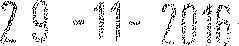 29 -11- 2016